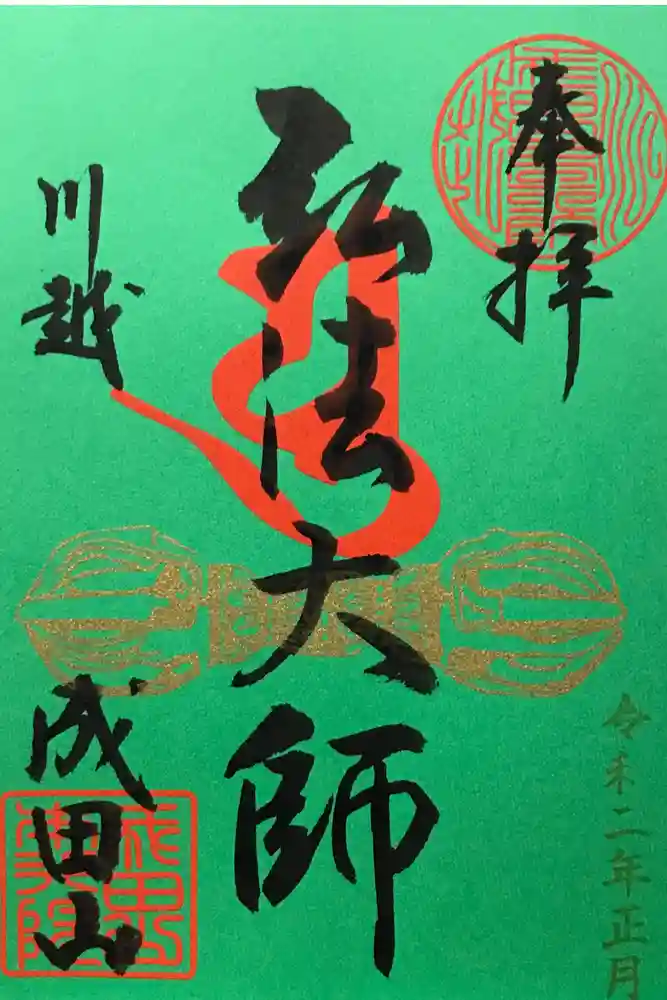 奉拝
令和二年正月
弘法大師
川越
成田山